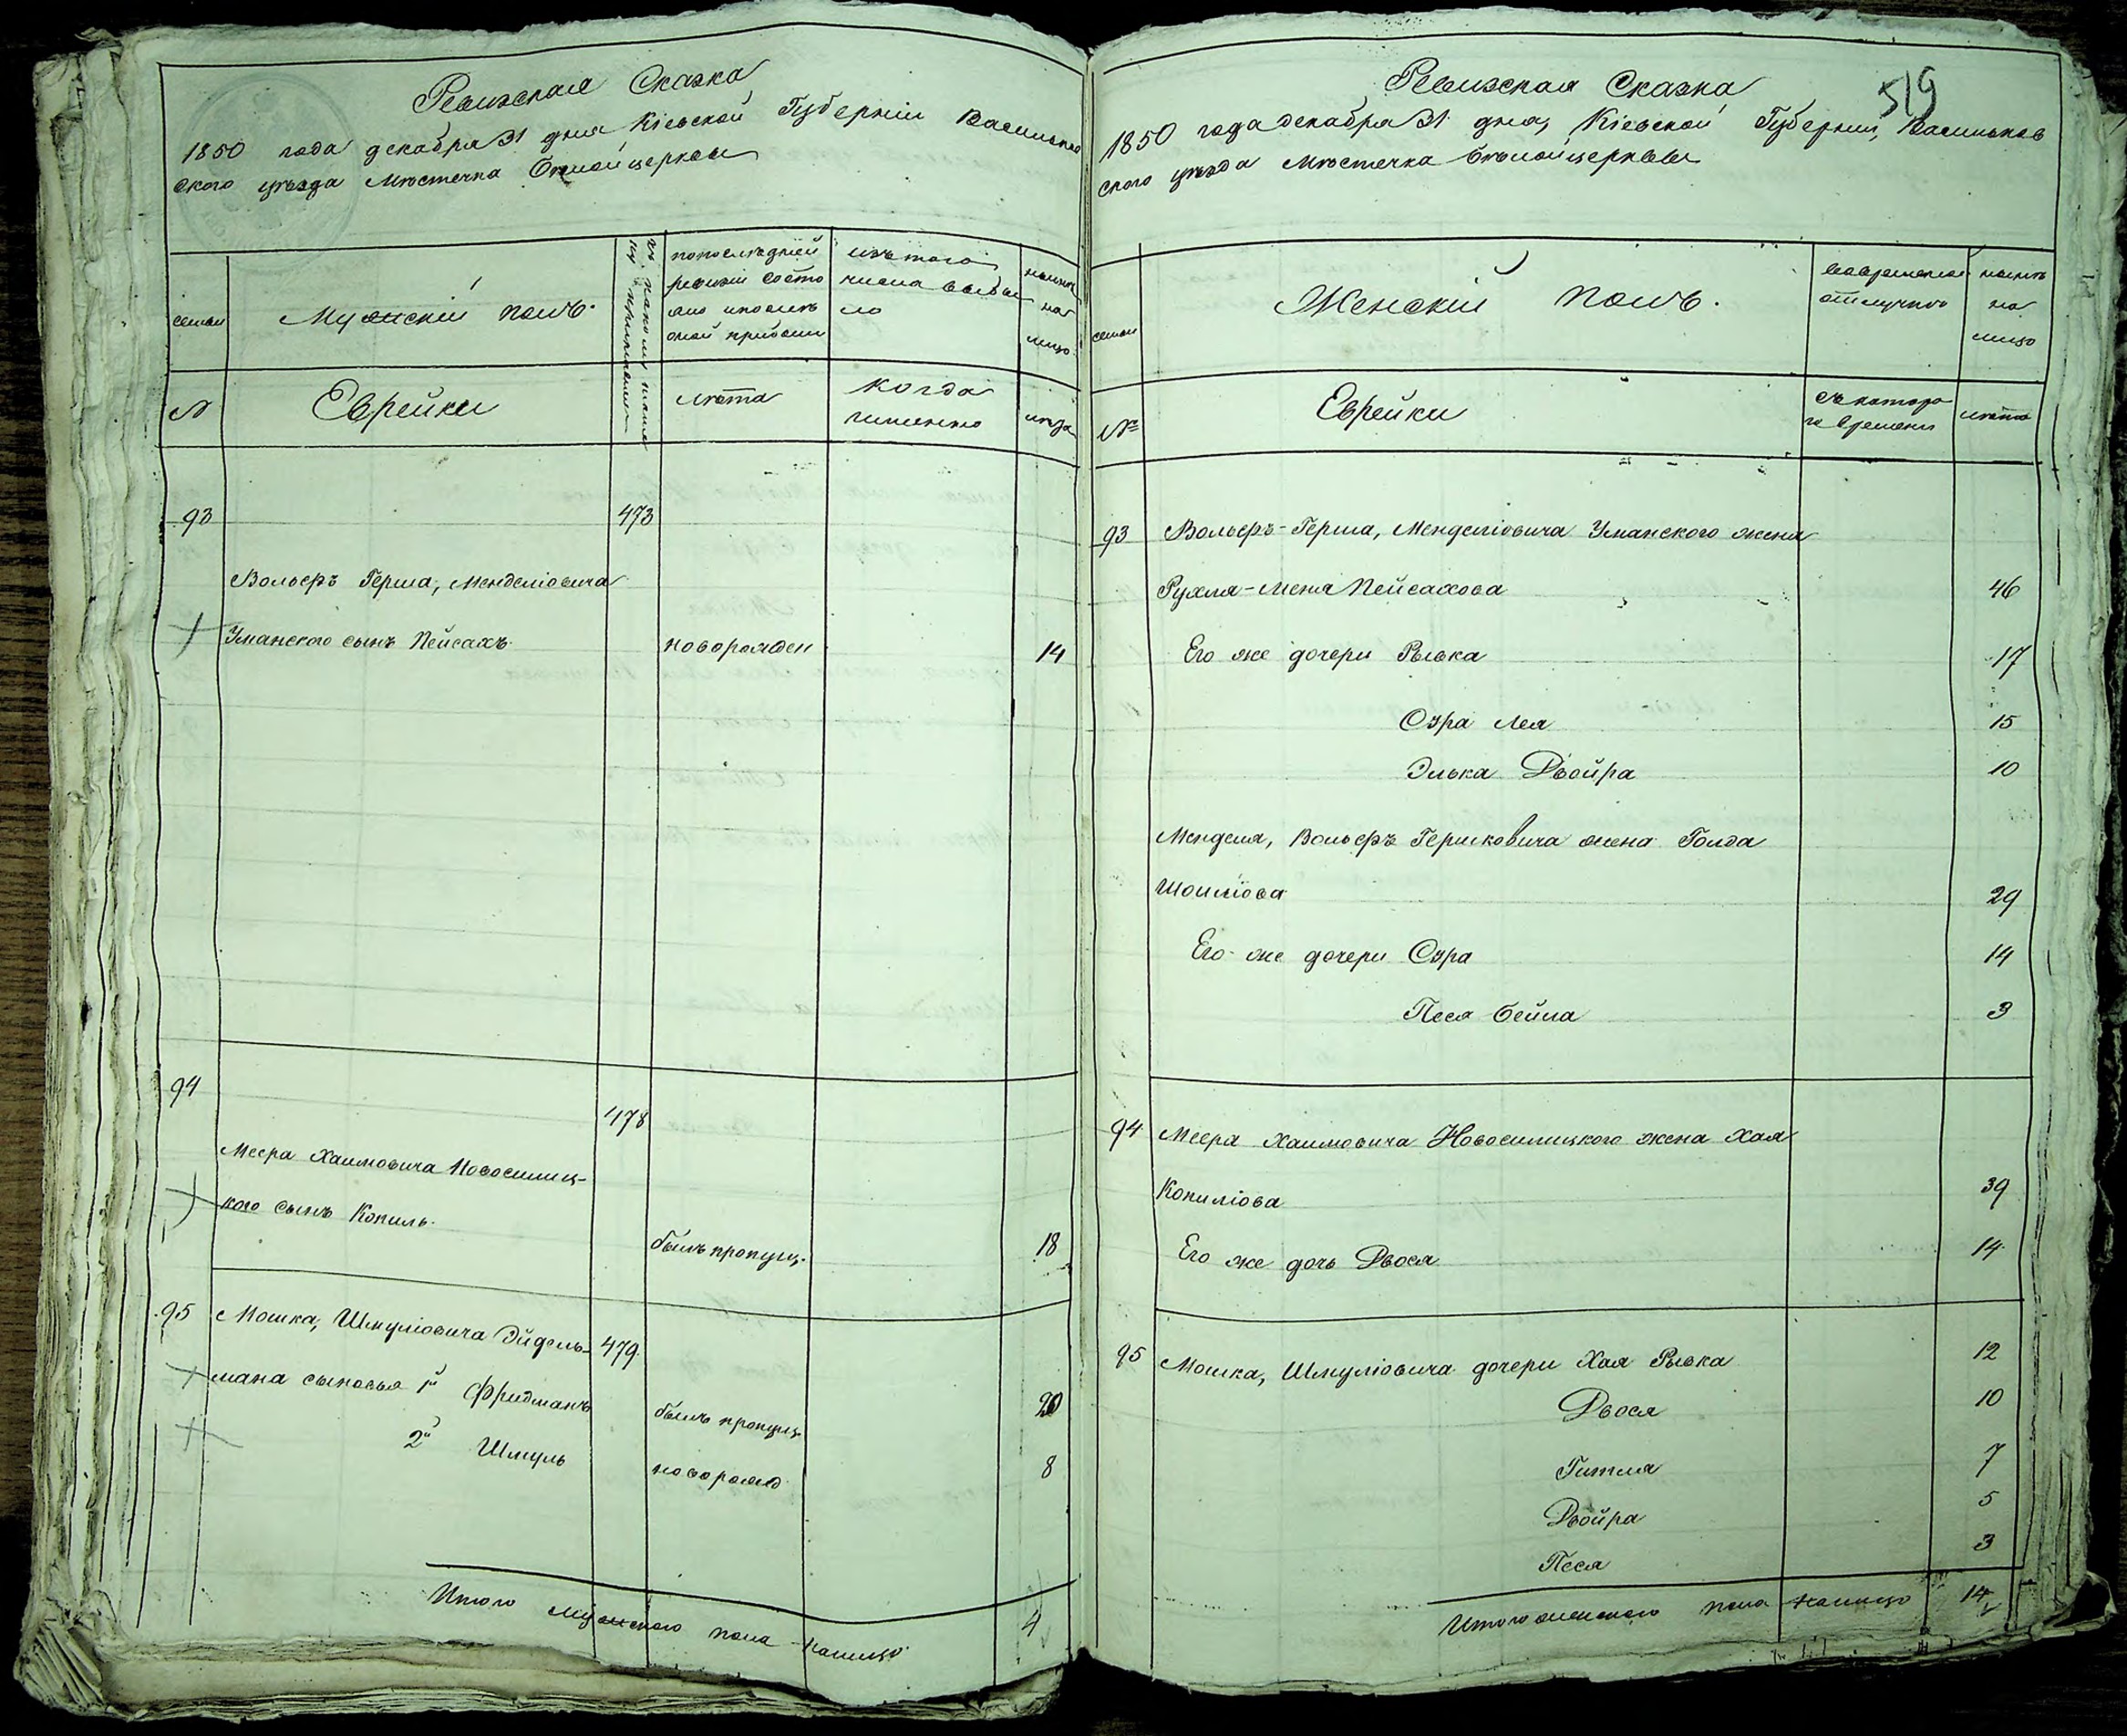 Ревизская Сказка
1850 года декабря 31 дня Кіевской Губерніи Васильков
ского уѣзда Мѣстечка Бѣлой церкви
семьи
Мужскій полъ.
по последней
ревизіи состо
яло и после
оной прибыли
изъ того
числа выбы
ло
нынѣ
на
лицо
№
Еврейки
лѣта
когда
именно
лѣта
93
473
Вольфъ Герша, Менделіовича
Уманского сынъ Пейсахъ
новорожден
14
94
478
Меера Хаимовича Новосилиц-
кого сынъ Копиль
былъ пропущ.
18
95
Мошка, Шмуліовича Эйдель-
479
мана сыновья 1й Фридманъ
былъ пропущ.
20
2й Шмуль
новорожд
8
Итого мужского пола налицо
4
519
Ревизская Сказка
1850 года декабря 31 дня, Кіевской Губерніи, Васильков
ского уѣзда Мѣстечка Бѣлой церкви
семьи
Женскій полъ.
во временной
отлучкѣ
нынѣ
на
лицо
№
Еврейки
съ которо
го времени
лѣта
93
Вольфъ-Герша, Менделіовича Уманского жена
Рухля-Меня Пейсахова
46
Его же дочери Рывка
17
Сура Лея
15
Элька Двойра
10
Менделя, Вольфъ Гершковича жена Голда
Шоиліова
29
Его же дочери Сура
14
Песя Бейла
3
94
Меера Хаимовича Новосилицкого жена Хая
Копиліова
39
Его же дочь Двося
14
95
Мошка, Шмуліовича дочери Хая Рывка
12
Двося
10
Гитля
7
Двойра
5
Песя
3
Итого женского пола налицо
14